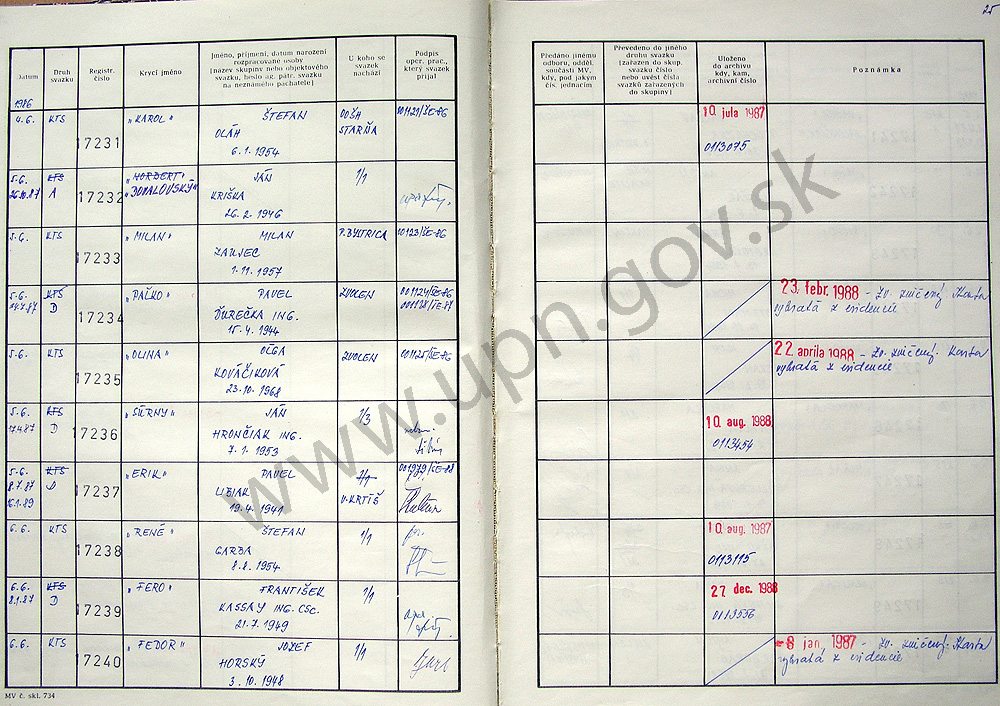 25
Datum
Druh svazku
Registr. číslo
Krycí jméno
Jméno, příjmení, datum narození
rozpracované osoby
[název skupiny nebo objektového
svazku, heslo ag. pátr. svazku
na neznámého pachatele]
U koho se
svazek
nachází
Podpis
oper. prac.,
který svazek
přijal
Předáno jinému
odboru, odděl.
součásti MV,
kdy, pod jakým
čís. jednacím
Převedeno do jiného
druhu svazku
[zařazen do skup.
svazku číslo
nebo uvést čísla
svazků zařazených
do skupiny]
Uloženo
do archivu
kdy, kam,
archivní číslo
Poznámka
1986
4.6. KTS 17231 „KAROL" ŠTEFAN
OLÁH
6.1.1954
OOŠH
STARŇA
001121/ŠE-86
10. júla 1987
0113075
5.6. KTS
26.10.87 A
17232 „NORBERT"
"DÚBALOVSKÝ"
JÁN
KRIŠKA
26.2.1946
1/1
5.6. KTS 17233 „MILAN" MILAN
ZAUJEC
1.11.1957
P. BYSTRICA
00123/ŠE-86
5.6. KTS
D
17234 „PAĽKO" PAVEL
ĎUREČKA ING.
15.4.1944
ZVOLEN
001124/ŠE-86
001128/ŠE-87
23. febr. 1988 - Zv. zničený. Karta
vybratá z evidencie
5.6. KTS 17235 „OLINA" OĽGA
KOVÁČIKOVÁ
23.10.1968
ZVOLEN
001125/ŠE-86
22. apríla 1988 - Zv. zničený. Karta
vybratá z evidencie
5.6. KTS
17.4.87 D
17236 „SÚRNY" JÁN
HRONČIAK ING.
7.1.1953
1/3
10. aug. 1988
0113454
5.6. KTS
8.7.87 D
17237 „ERIK" PAVEL
LIBIAK
19.4.1941
1/1
V. KRTÍŠ
001979/ŠE-88
6.6. KTS 17238 „RENÉ" ŠTEFAN
GARBA
8.8.1954
1/1
10. aug. 1987
0113115
6.6. KTS
8.1.87 D
17239 „FERO" FRANTIŠEK
KASSAY ING. CSC.
21.7.1949
1/1
27. dec. 1988
0113556
6.6. KTS 17240 „FEDOR" JOZEF
HORSKÝ
3.10.1948
1/1
-8. jan. 1987 - Zv. zničený. Karta
vybratá z evidencie
MV č. skl. 734
www.upn.gov.sk